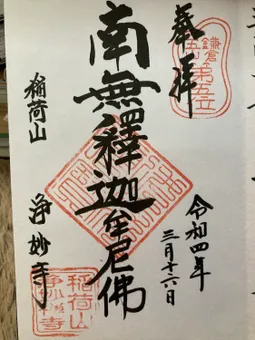 奉拝
鎌倉
五山第五位
令和四年
三月十六日
南無釋迦牟尼佛
稲荷山 浄妙寺
稲荷山